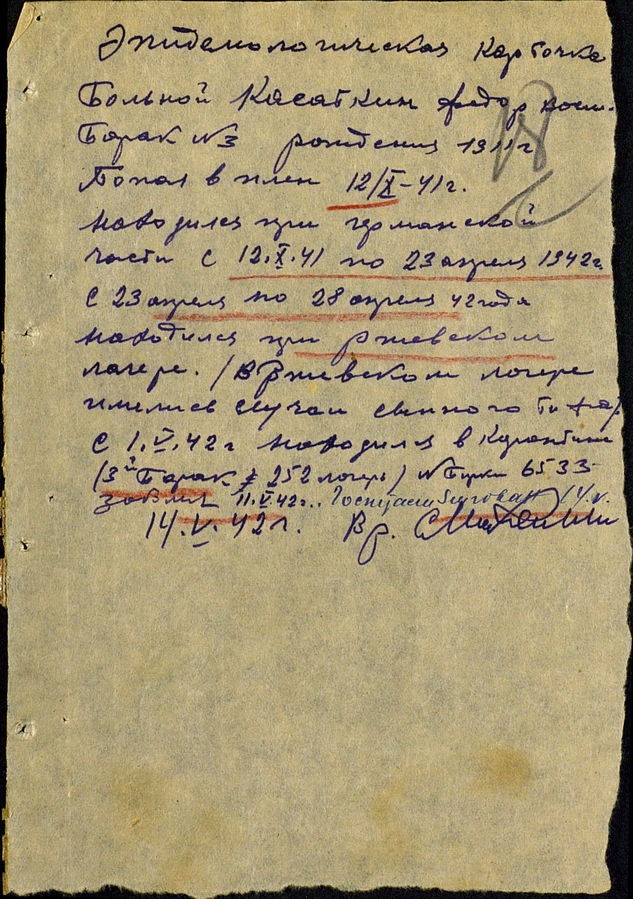 Эпидемологическая карточка
Больной Касаткин Федор
Барак №3 рождения 1911 г
Попал в плен 12/X-41 г.
находился при германской
части с 12.X.41 по 23 апреля 1942 г.
С 23 апреля по 28 апреля 42 года
находился при Ржевском
лагере. / В Ржевском лагере
имелись случаи сыпного тифа/
С 1.V.42 г находился в карантине
(3й барак 252 лагерь) № бирки 6533
11.V.42 г. Госпитализирован 14.V.
14.V.42 г. Вр.